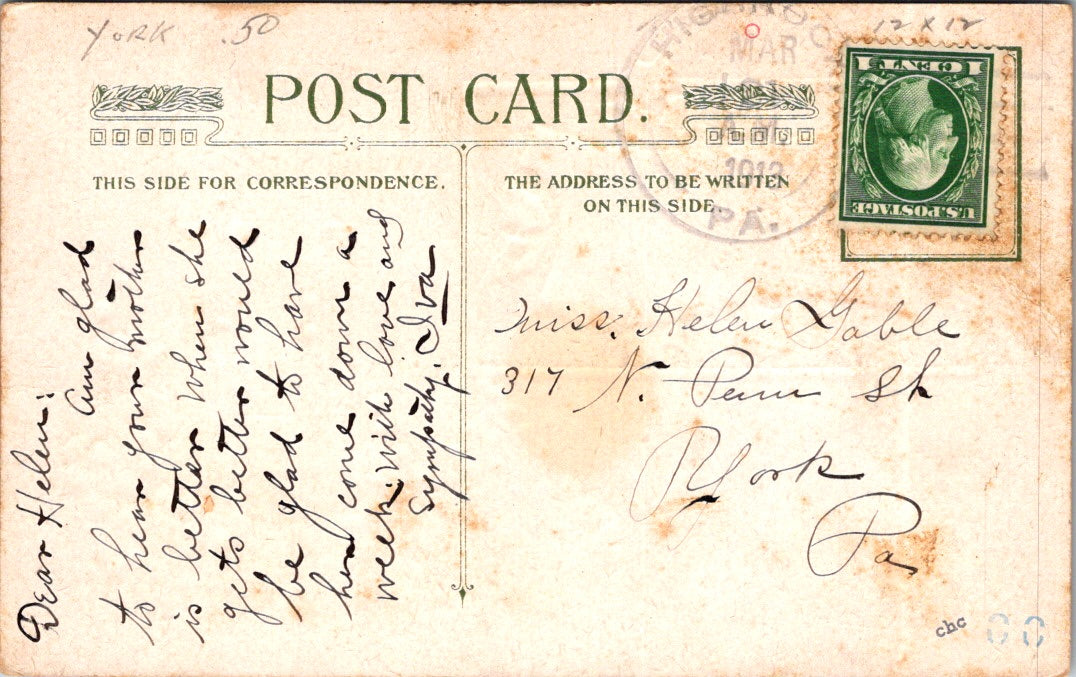 YORK .50
12 x 12
POST CARD.
MAR
A.M.
PA.
1 CENT 1
U.S. POSTAGE
THIS SIDE FOR CORRESPONDENCE.
THE ADDRESS TO BE WRITTEN
ON THIS SIDE
Dear Helen:
Am glad
to hear your mother
is better when she
gets better would
be glad to have
her come down a
week. with love and
sympathy. Iva
Miss. Helen Gable
317 N. Penn St
York
Pa
chc